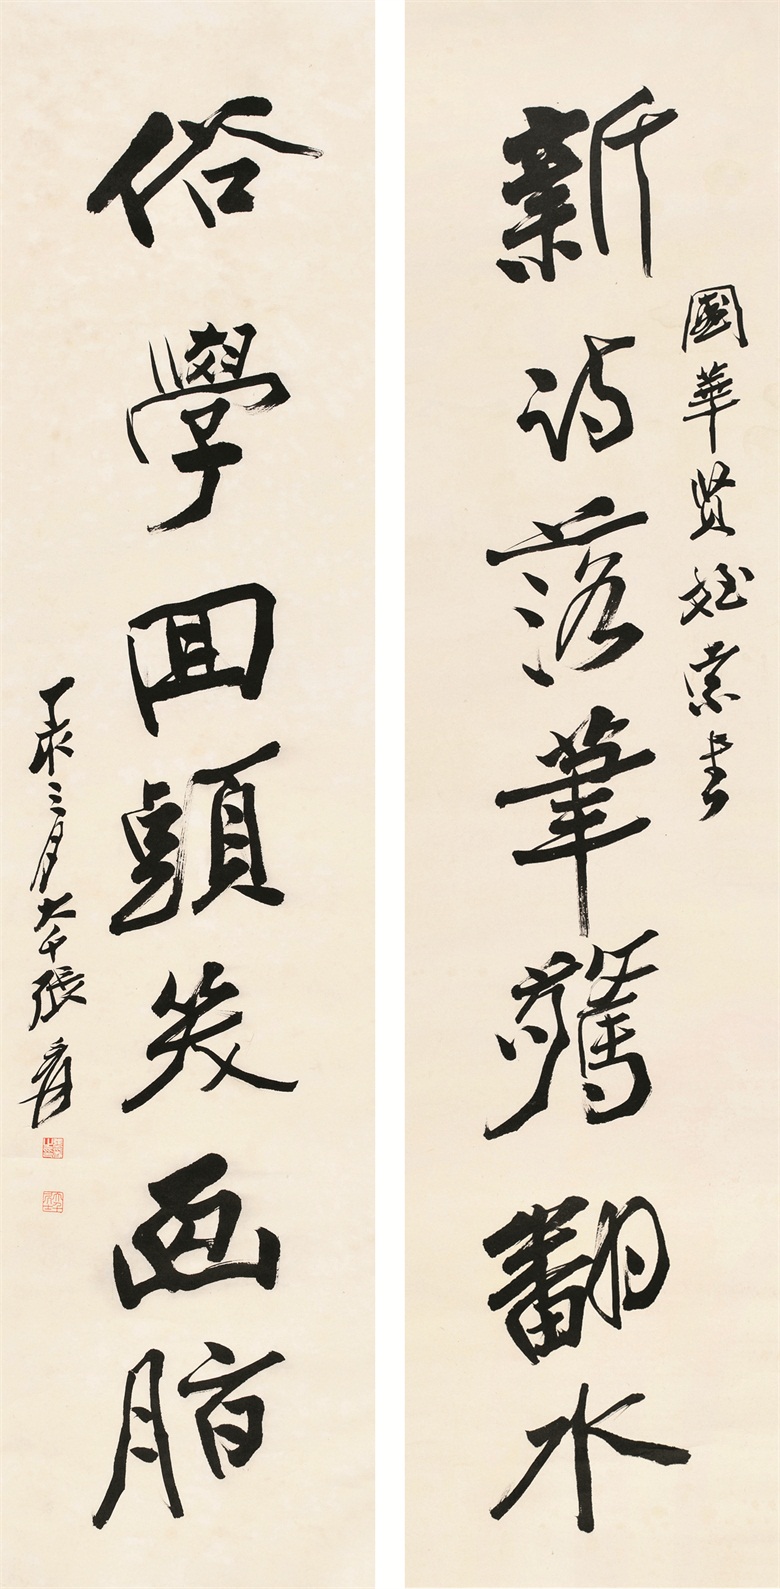 國華賢姪索書
新詩落筆驚翻水
俗學回頭笑画脂
丁亥三月大千張爰